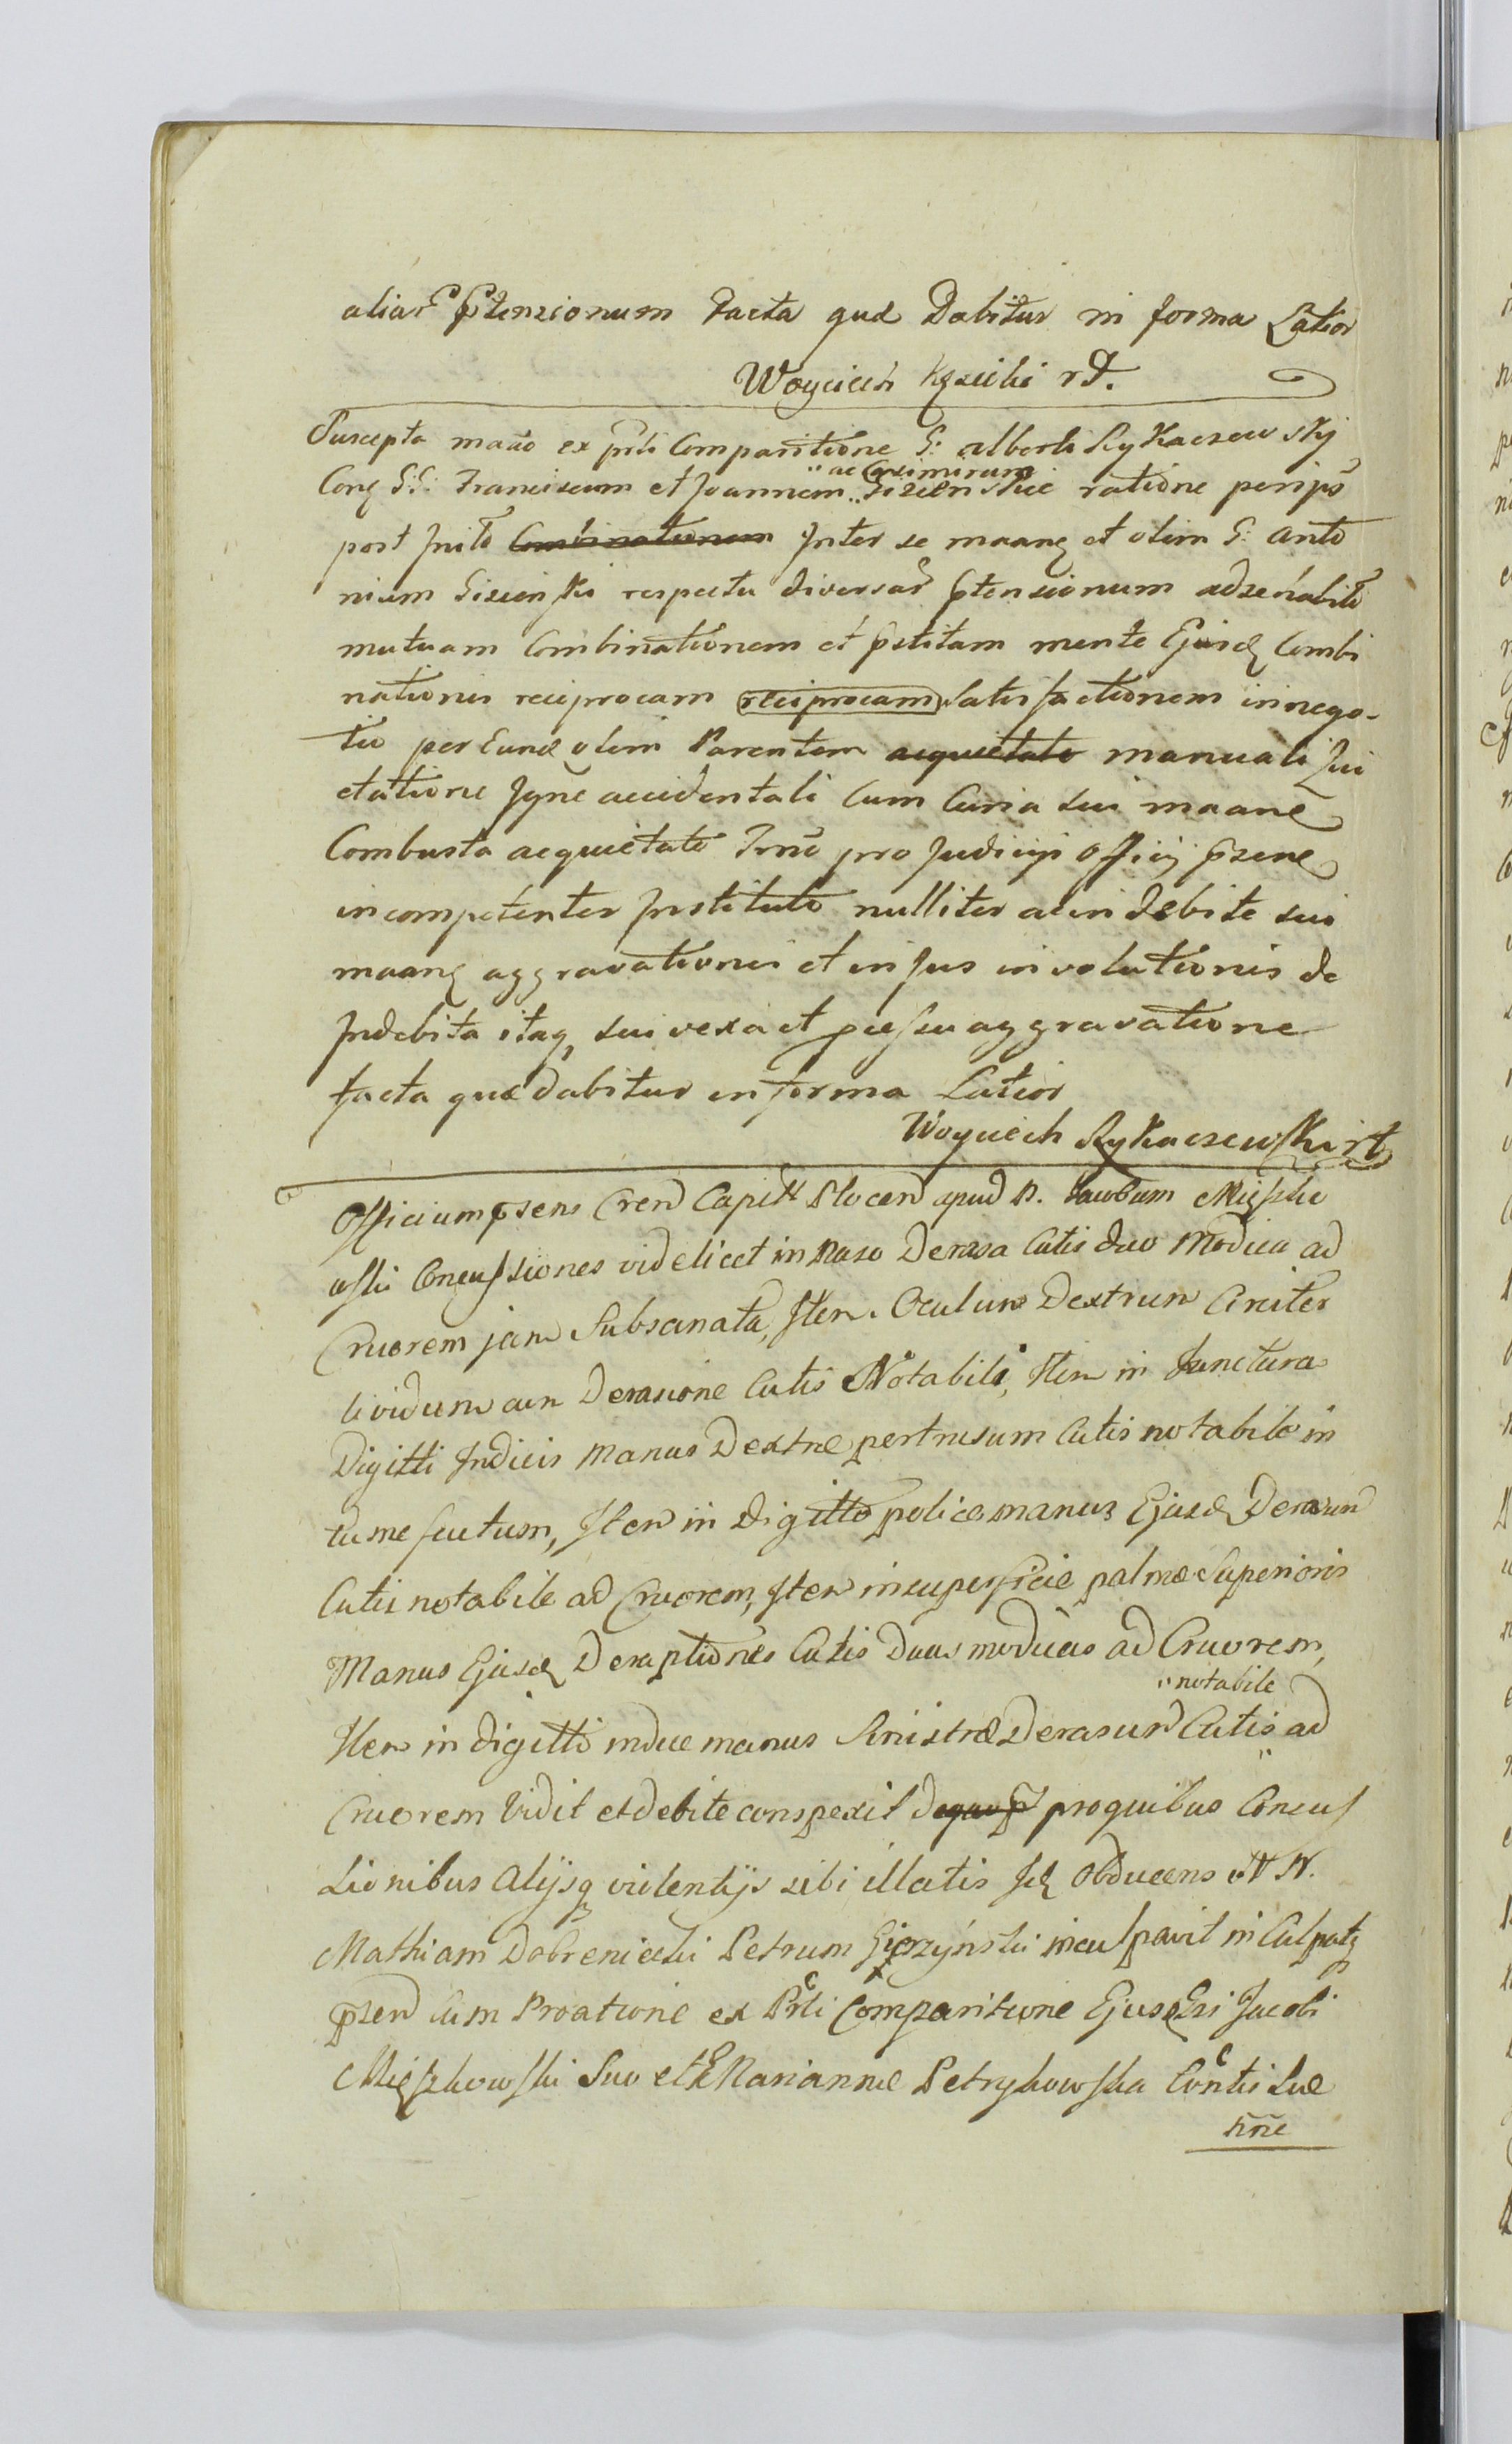 aliar ptensionum facta quae Dabitur in forma Latior
Woyciech
Suscepta ex prti Comparitione G: alberti Rykaczewskij
Conq G:G: Franciscum et Joannem ac Casimirum ratione perips
post Inito Combinationem Inter se maanq et olim G: Anto
nium respectu diversar ptensionum adse habito
mutuam Combinationem et pstitam mente Ejusd Combi
nationis reciprocam reciprocam Satisfactionem in nego-
tio per Eund olim Parentem acquietato manuali
etatione Igne accidentali Cum Curia sui maane
Combusta acquietato Trno pro Judicijs Officij psene
incompetenter Instituto nulliter ac indebite sui
maanq aggravationis et in Jus involutionis de
Indebita itaq sui vexa et aggravatione
facta quae dabitur in forma Latior
Woyciech Rykaczewski
Officium psens Capit Plocen apud N. Jacobum Mięszko
wski Concussiones videlicet in Naso Derasa Cutis duo Modica ad
Cruorem jam Subsanata, Item Oculum Dextrum Citer
lividum cum Derasione Cutis Notabili, Item in Junctura
Digitti Indicis Manus Dextrae pertusum Cutis notabile in
tumefactum, Item in Digitto police manus Ejusd Derasum
Cutis notabile ad Cruorem, Item in superficie palmae Superioris
Manus Ejusd Deraptiones Cutis Duas modicas ad Cruorem,
notabile
Item in digitto indice manus Sinistrae Derasum Cutis ad
Cruorem Vidit et debite conspexit pro quibus Concus
sionibus alijsq violentijs sibi illatis Id Obducens N.
Mathiam Dobreniecki Petrum Gierzyński inculpavit inculpatq
psen cum Proatione ex Prti Comparitione Ejusd Jacobi
Mięszkowski Suo et Marianne Petrykowska Contis Suae
nne